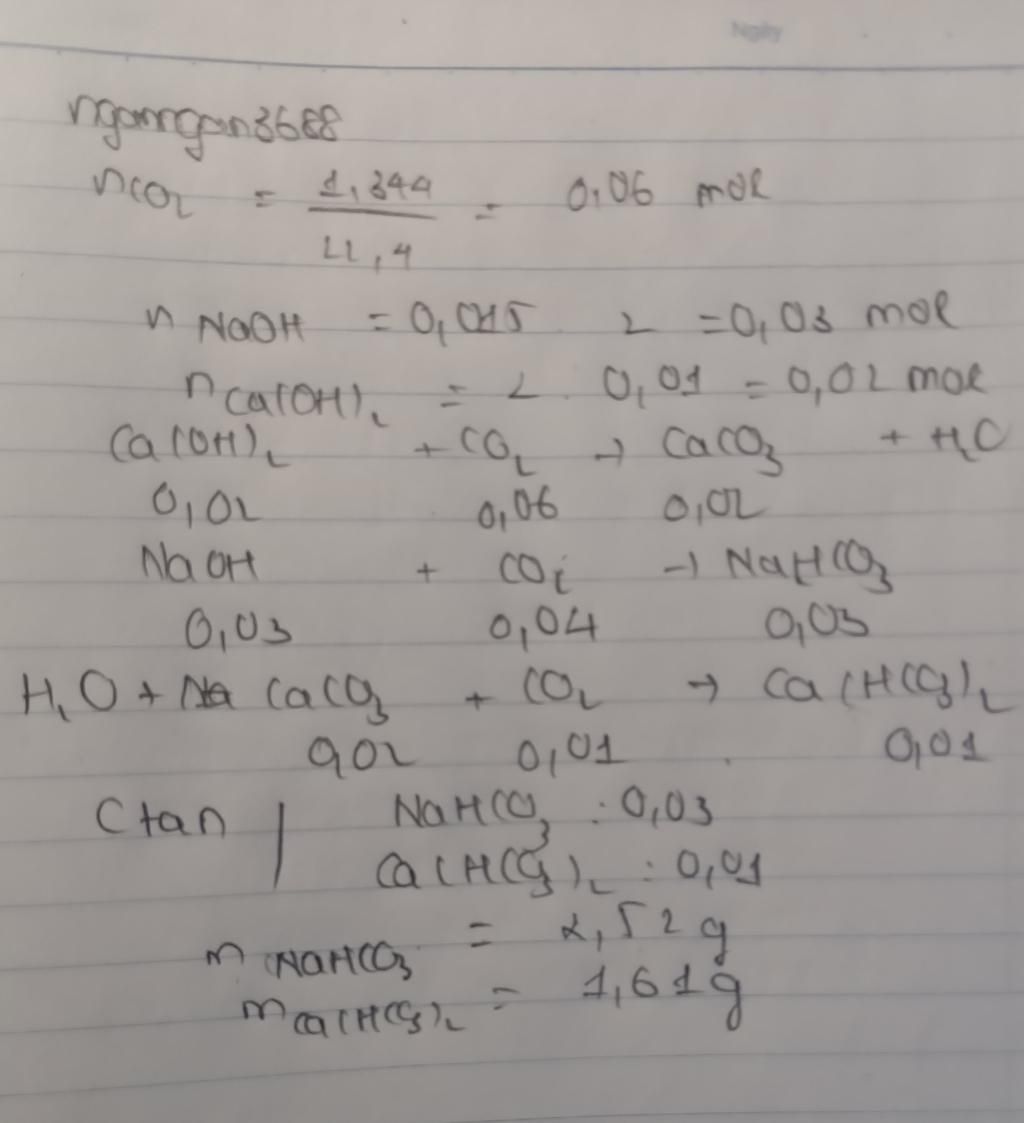 Ngày
ngamgan3688
nCO2 = 1,344 / 22,4 = 0,06 mol
n NaOH = 0,015 . 2 = 0,03 mol
nCa(OH)2 = 2 . 0,01 = 0,02 mol
Ca(OH)2 + CO2 → CaCO3 + H2O
0,02 0,06 0,02
NaOH + CO2 → NaHCO3
0,03 0,04 0,03
H2O + CaCO3 + CO2 → Ca(HCO3)2
0,02 0,01 0,01
C tan | NaHCO3 : 0,03
Ca(HCO3)2 : 0,01
m NaHCO3 = 2,52 g
m Ca(HCO3)2 = 1,61 g